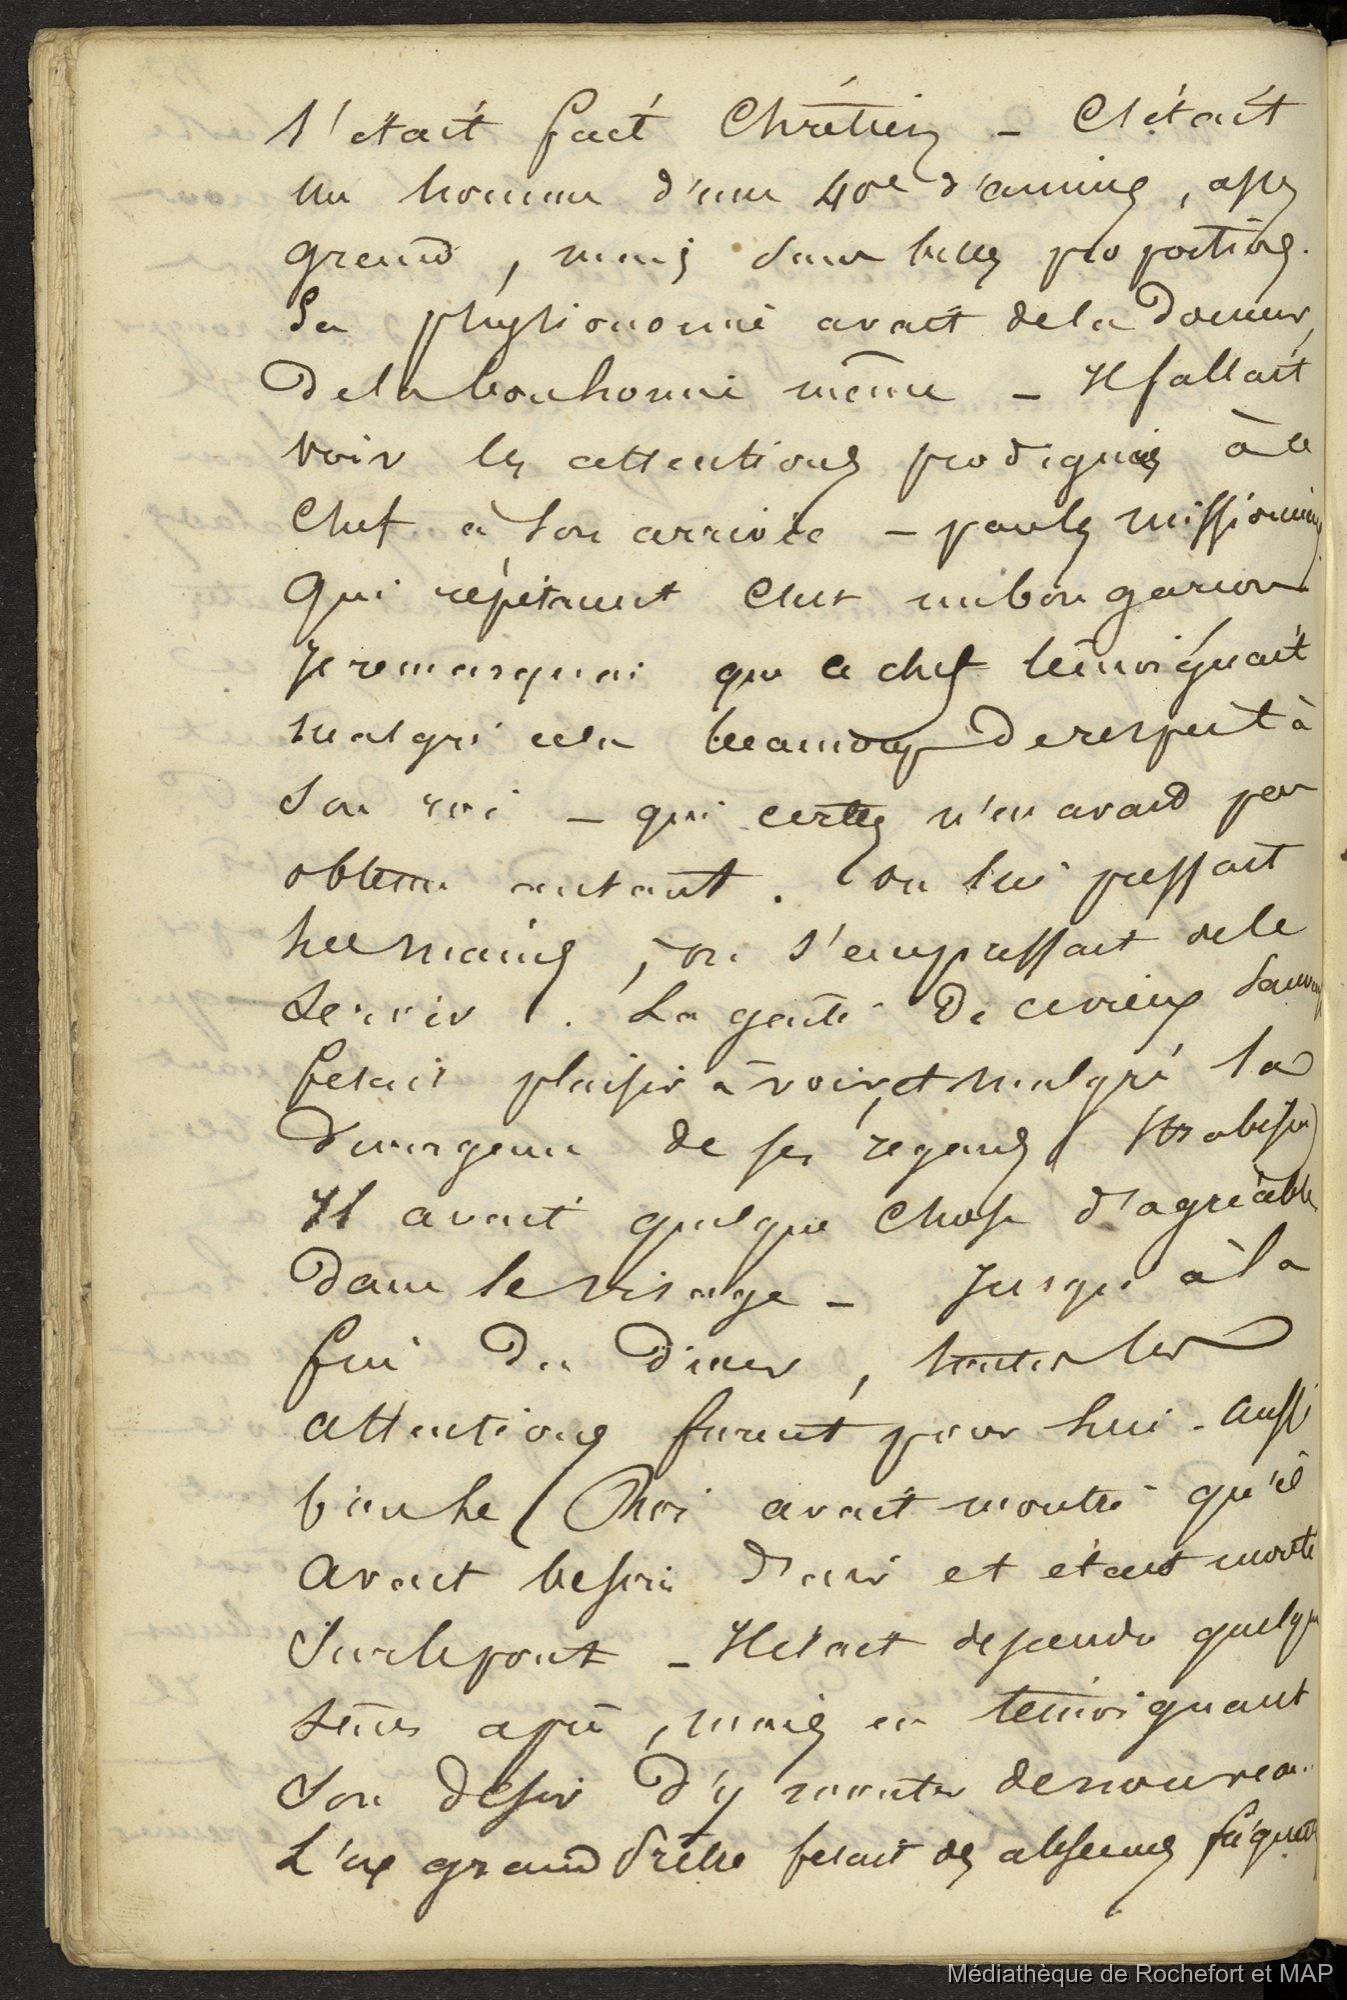 s'était fait Chrétien - C'était
un homme d'une 40e d'années, assez
grand, mais dans belles proportions.
Sa physionomie avait de la Douceur,
De la bonhomie même - Il fallait
voir les attentions prodiguées à ce
Chef à son arrivée - par les missionnaires
Qui répétaient C'est un bon garçon
Je remarquai que ce chef témoignait
malgré cela beaucoup De respect à
Son roi - qui certes n'en avait pas
obtenu autant. On lui pressait
les mains, on s'empressait de le
Servir. La gaité De ce vieux Sauvage
fesait plaisir à voir, et malgré la
Divergence de ses regards (Strabisme)
Il avait quelque Chose d'agréable
Dans le visage - Jusqu'à la
fin Du Diner, toutes les
attentions furent pour lui - aussi
bien le Roi avait montré qu'il
avait besoin D'air et était monté
Sur le pont - Il était descendu quelque
tems après, mais en témoignant
Son Désir D'y monter de nouveau.
L'ex grand Prêtre fesait des absences fréquentes
Médiathèque de Rochefort et MAP